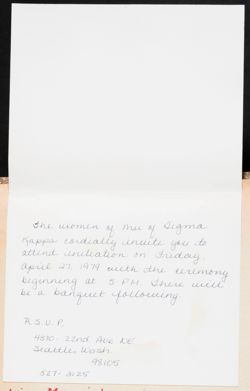 The women of Mu of Sigma
Kappa cordially invite you to
attend initiation on Friday,
April 27, 1979 with the ceremony
beginning at 5 P.M. There will
be a banquet following.
R.S.V.P.
4510- 22nd Ave NE
Seattle, Wash.
98105
527-3125